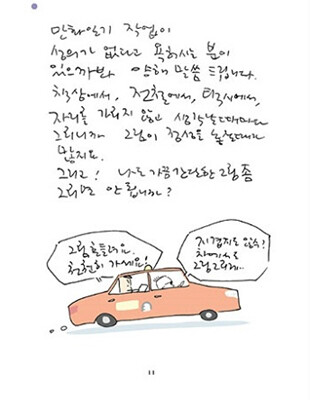 만화일기 작업이
성의가 없다고 욕하시는 분이
있을까봐 양해 말씀 드립니다.
책상에서, 전철에서, 택시에서,
자리를 가리지 않고 생각날때마다
그리니까 그림이 정신 놓을때가
많지요.
그리고! 나도 가끔 간단한 그림 좀
그리면 안 됩니까?
그림 흔들려요.
천천히 가세요!
지겹지도 않수?
차에서도
그림 그리게...
11